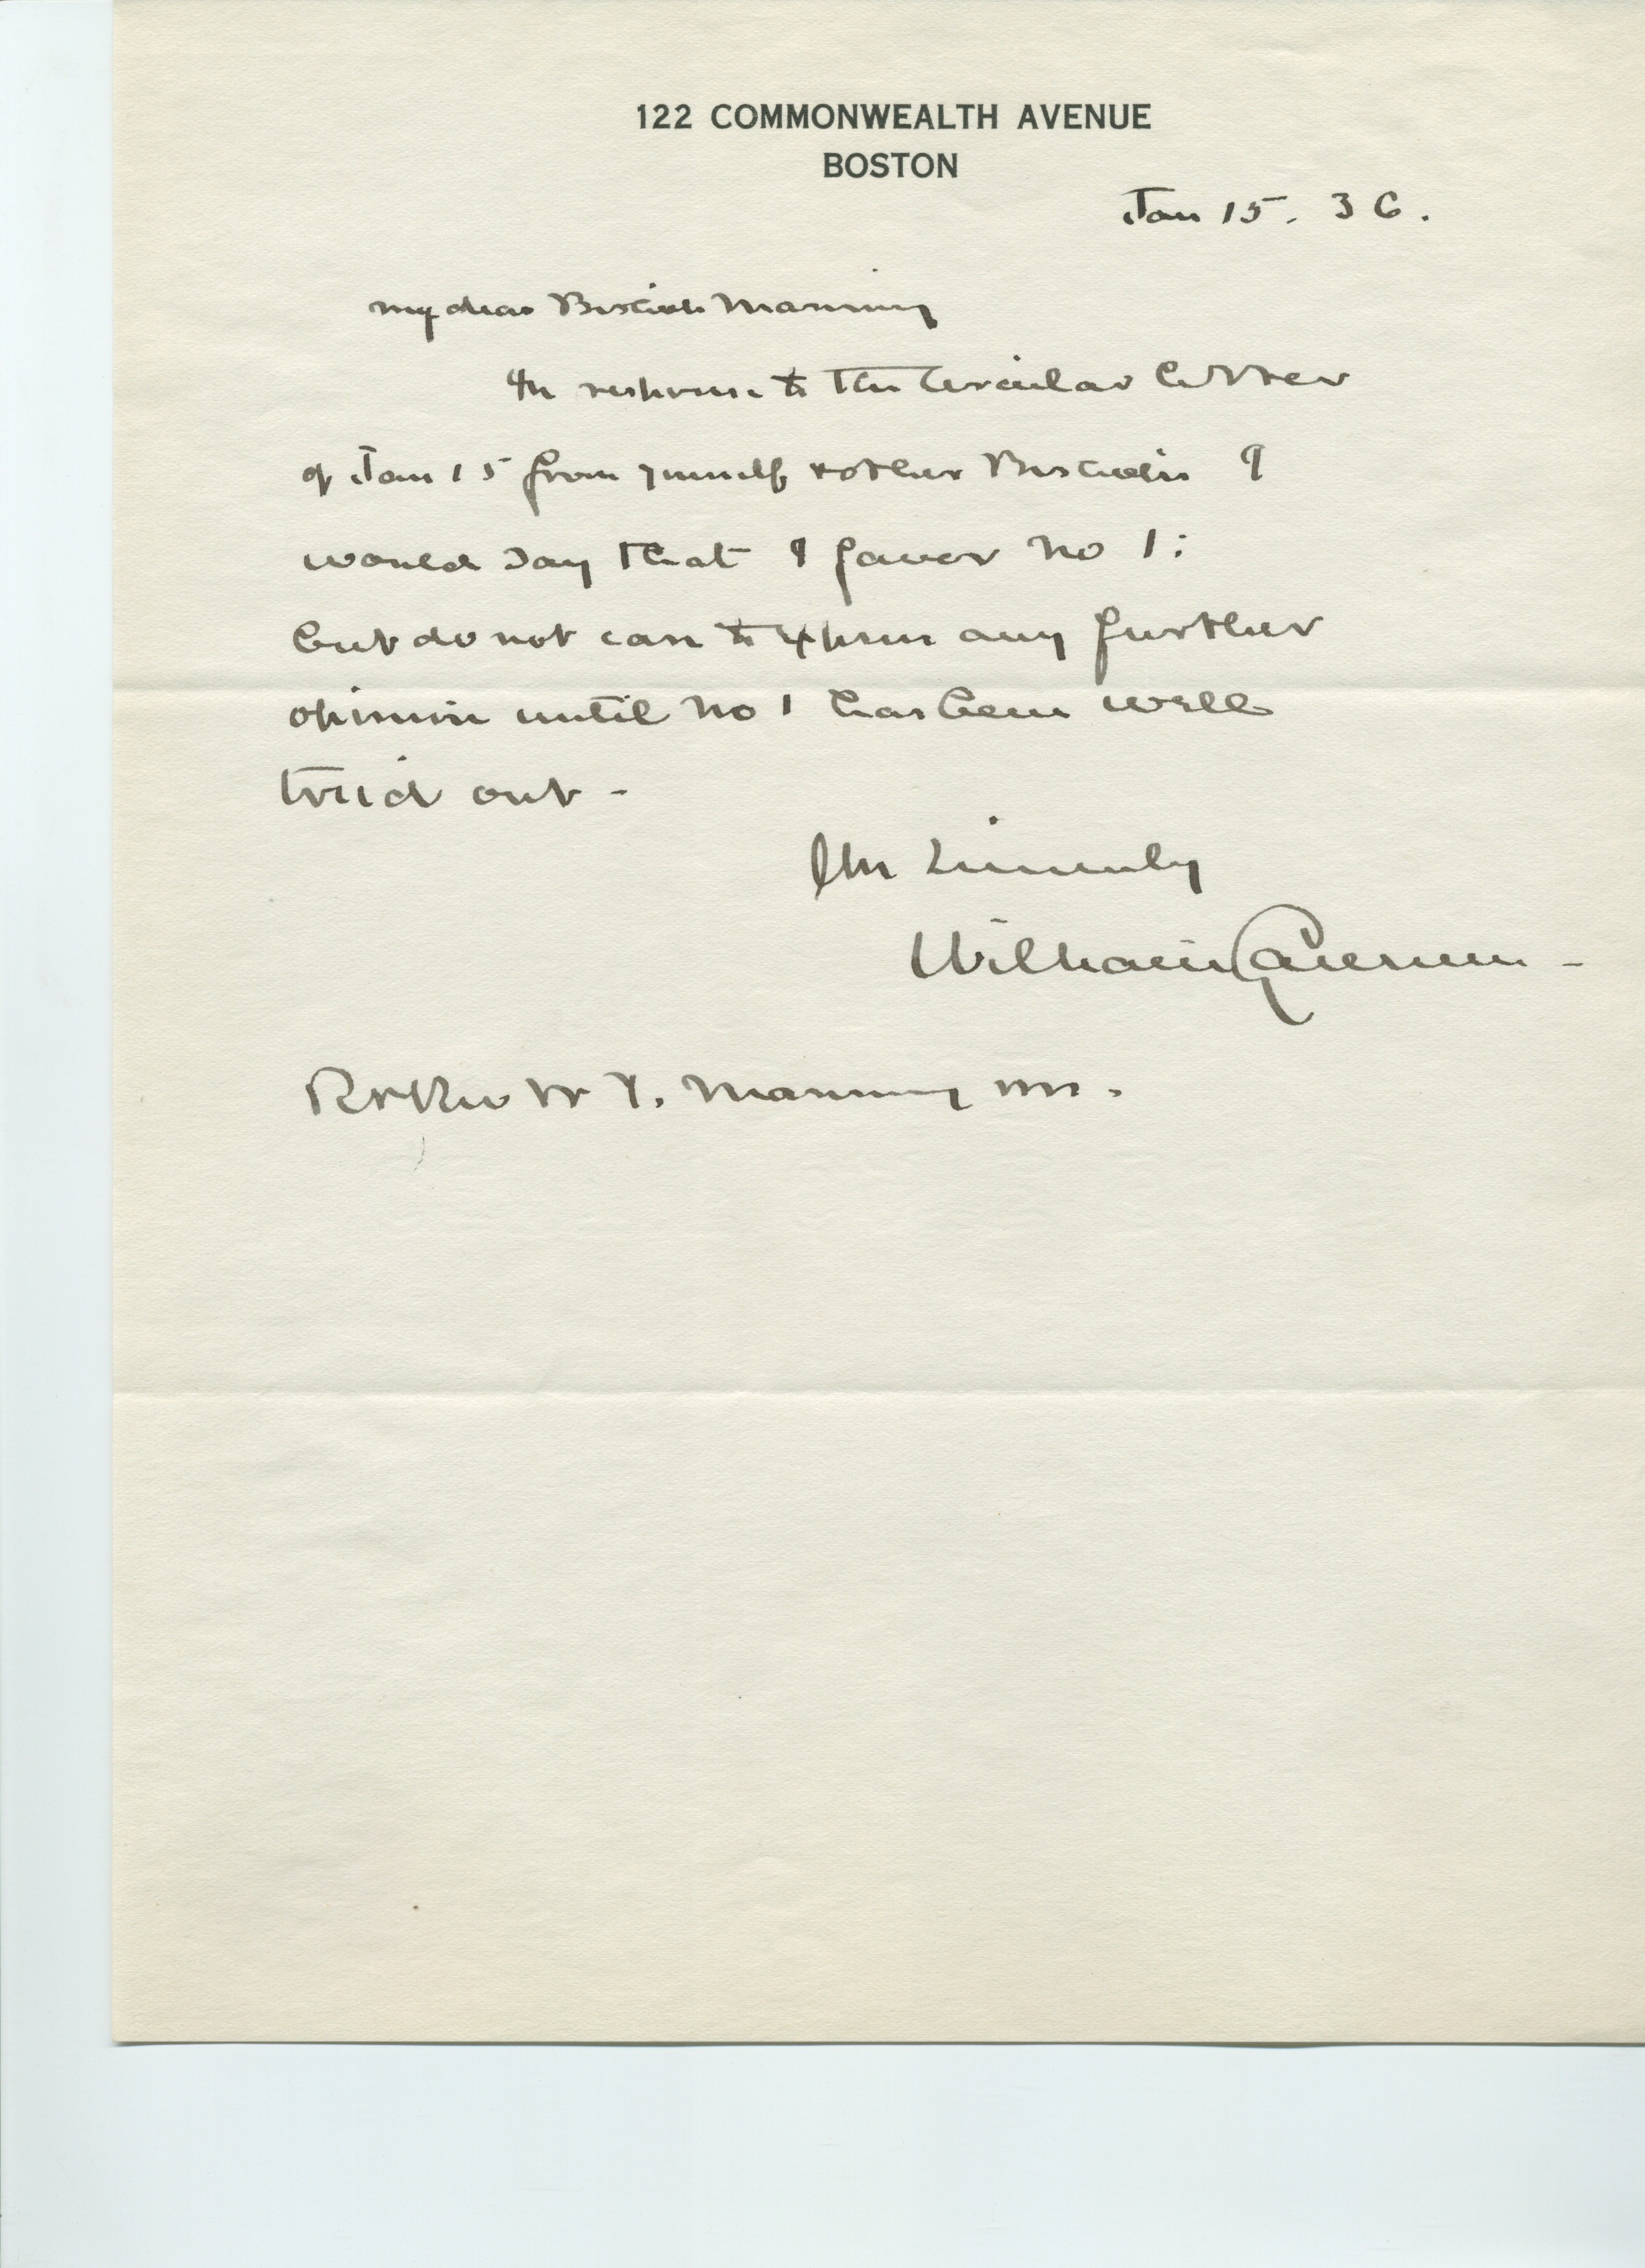 122 COMMONWEALTH AVENUE
BOSTON
Jan 15. 36.
My dear Bishop Manning
In response to the Circular letter
of Jan 15 from yourself & other Bishops I
would say that I favor No 1:
but do not care to express any further
opinion until No 1 has been well
tried out -
Yrs Sincerely
William
Rt Rev W T. Manning